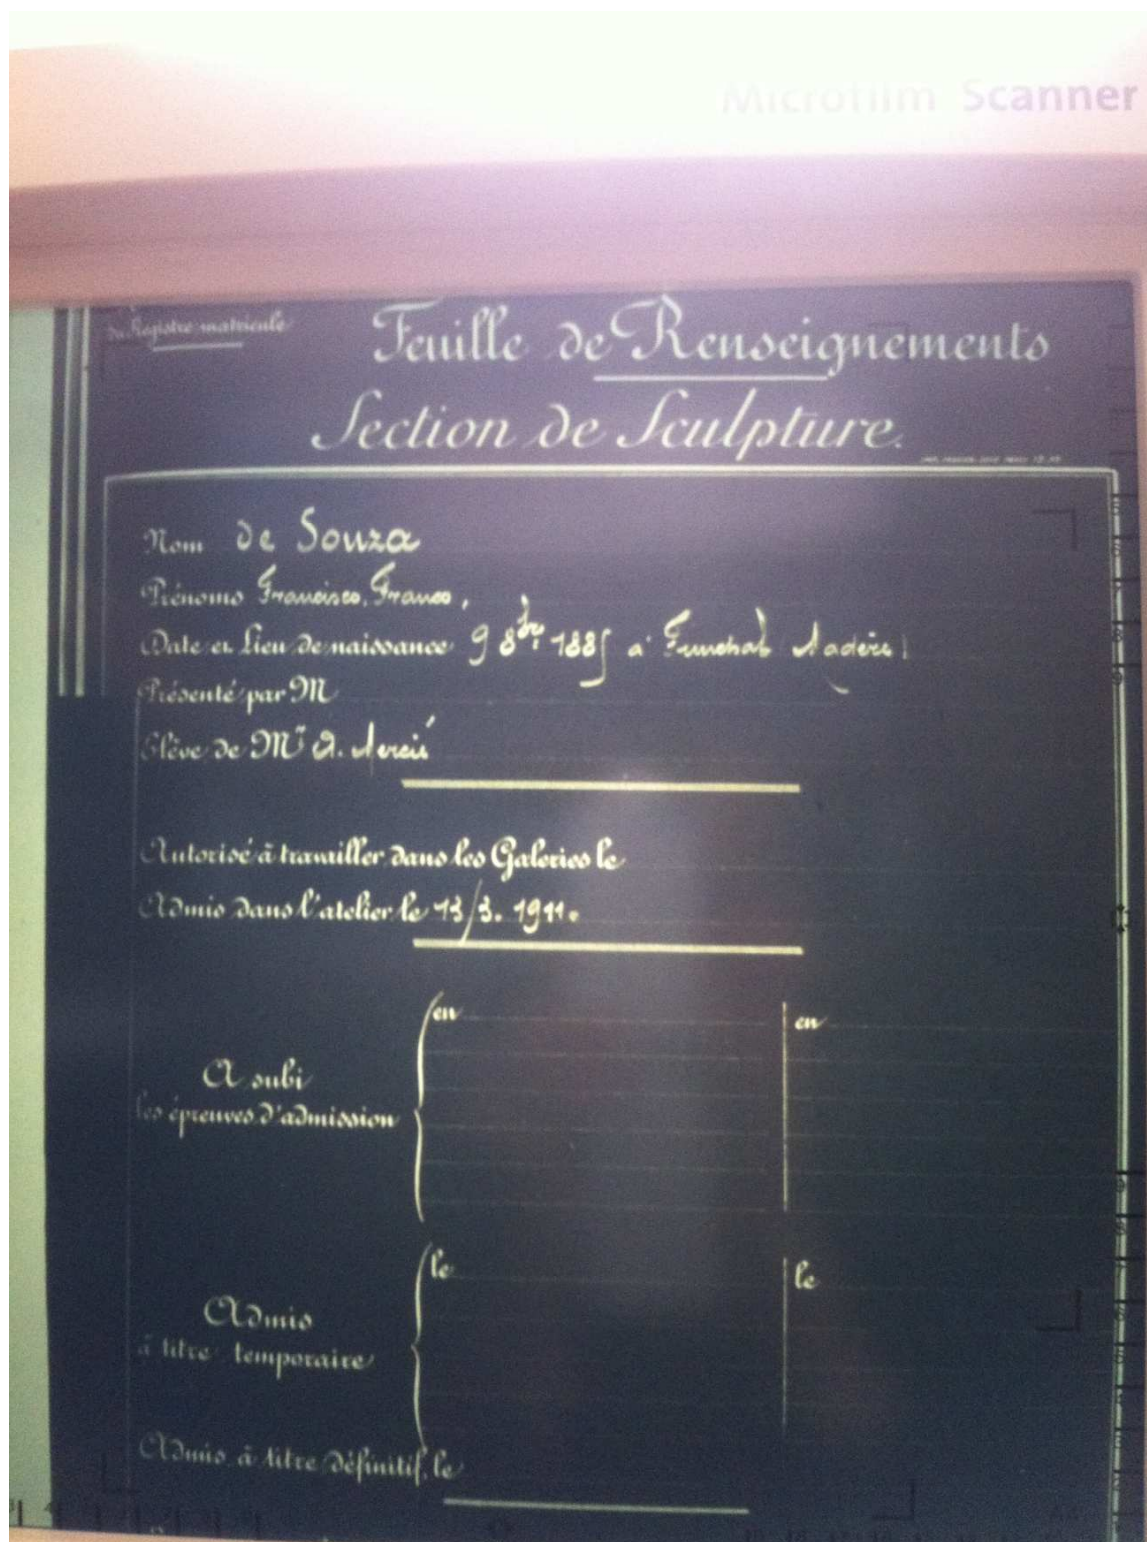 Microfilm Scanner
du Registre matricule
Feuille de Renseignements
Section de Sculpture.
Nom de Souza
Prénoms Francisco, Franco,
Date et Lieu de naissance 9 8bre 1885 à Funchal Madère
Présenté par M
Elève de Mr A. Mercié
Autorisé à travailler dans les Galeries le
Admis dans l'atelier le 13/3. 1911.
en
en
A subi
les épreuves d'admission
le
le
Admis
à titre temporaire
Admis à titre définitif, le